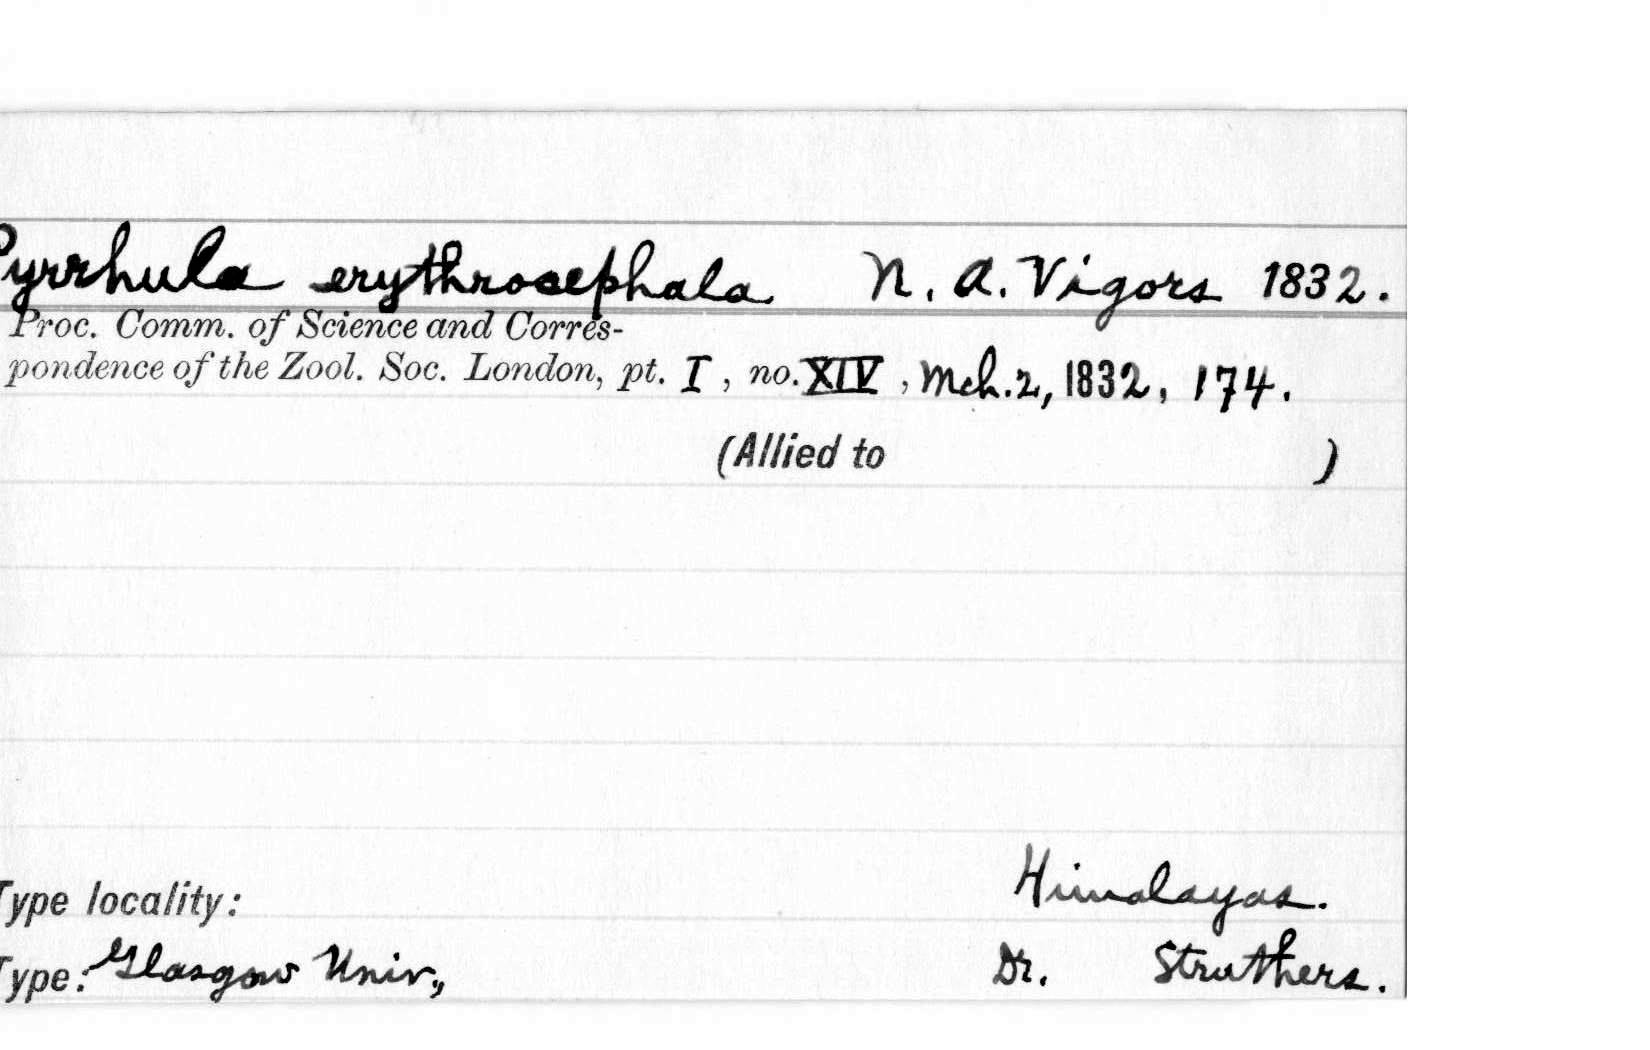 Pyrrhula erythrocephala N. A. Vigors 1832.
Proc. Comm. of Science and Corres-
pondence of the Zool. Soc. London, pt. I, no. XIV, Mch. 2, 1832, 174.
(Allied to )
Type locality: Himalayas.
Type: Glasgow Univ., Dr. Struthers.